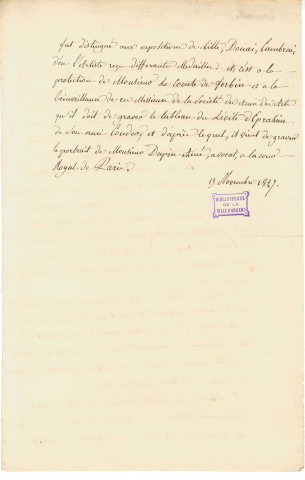 fut distingué aux expositions de Lille, Douai, Cambrai,
dou l'artiste reçu differante Medailles; et c'est a la
protection de Monsieur Le Comte de forbin et a la
bienveillance de ces Messieurs de la Societé des amis des Arts
qu'il doit de graver le tableau du Levite d'Ephraïm
de son ami Couder, et d'après lequel, il vient de graver
le portrait de Monsieur Dupin Ainé, avocat, a la cour
Royal de Paris.
13 Novembre 1827.
BIBLIOTHEQUE
DE LA
VILLE D'ANGERS